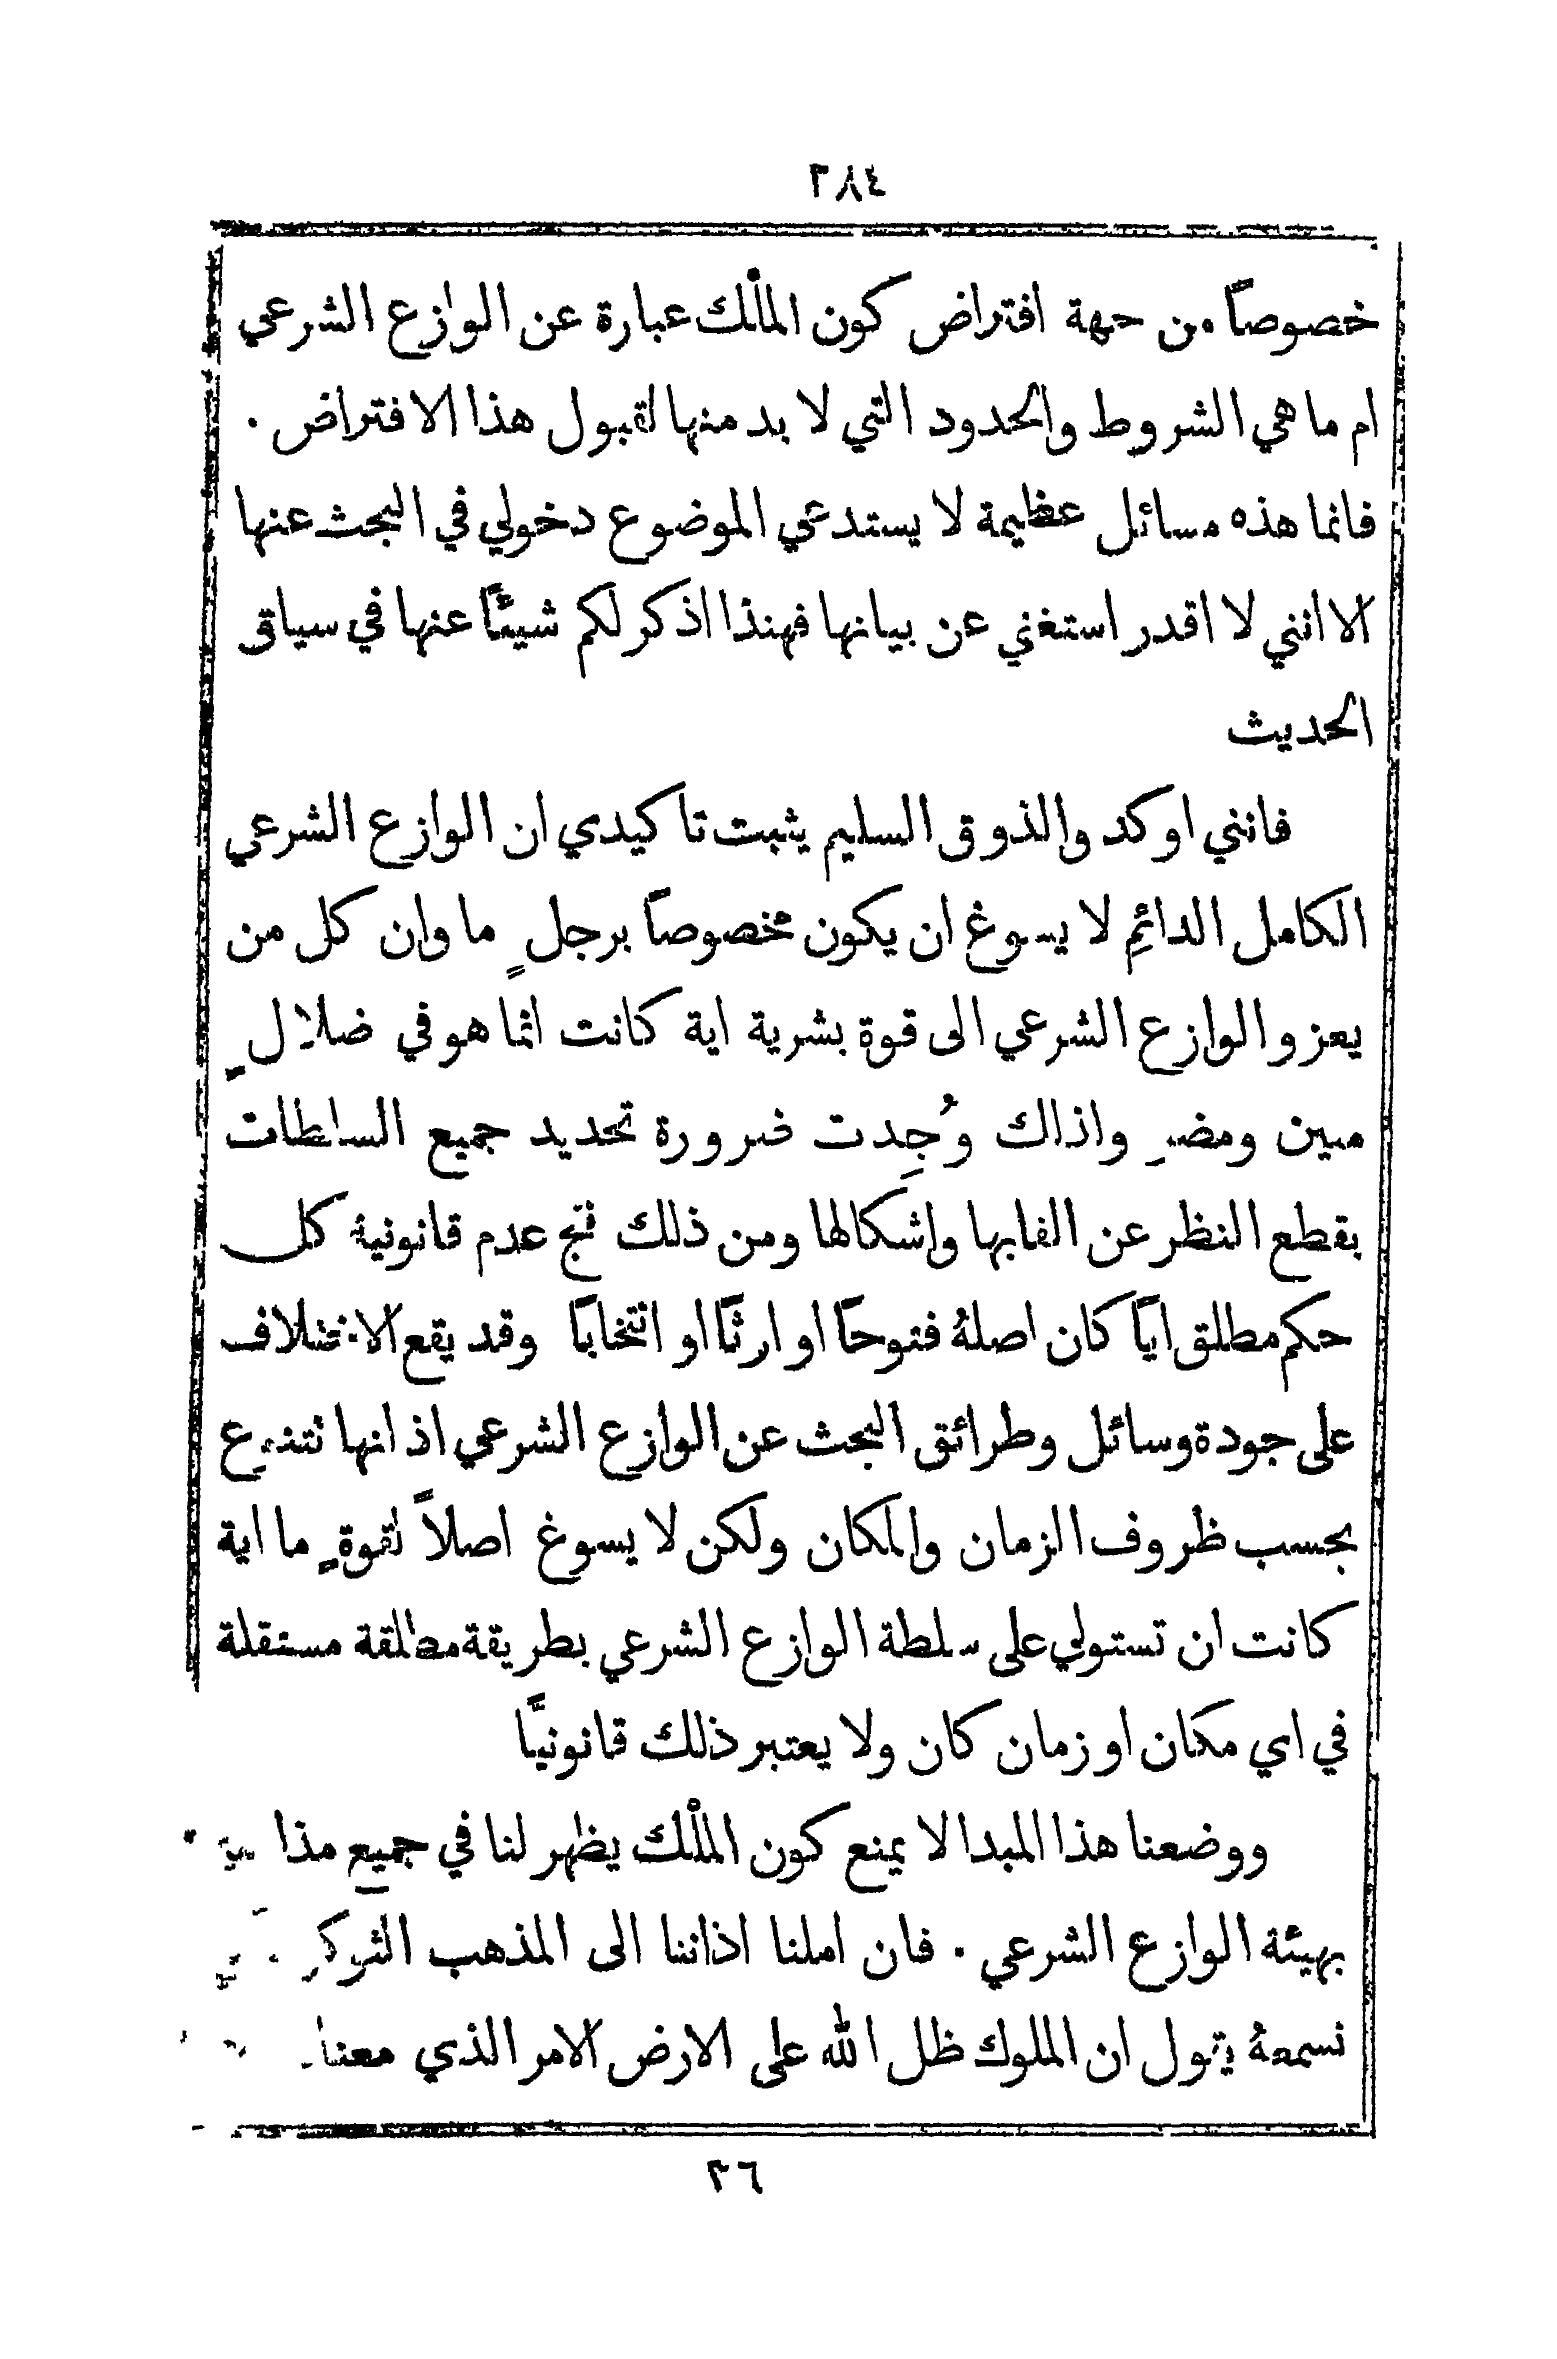 ٣٨٤
خصوصاً من جهة افتراض كون المُلك عبارة عن الوازع الشرعي
ام ما هي الشروط والحدود التي لا بد منها لقبول هذا الافتراض ٠
فانما هذه مسائل عظيمة لا يستدعي الموضوع دخولي في البحث عنها
الا انني لا اقدر استغني عن بيانها فهنذا اذكر لكم شيئًا عنها في سياق
الحديث
فانني اوكد والذوق السليم يثبت تاكيدي ان الوازع الشرعي
الكامل الدائم لا يسوغ ان يكون مخصوصاً برجلٍ ما وان كل من
يعزو الوازع الشرعي الى قوة بشرية اية كانت انما هو في ضلالٍ
مبين ومضر واذاك وُجِدت ضرورة تحديد جميع السلطات
بقطع النظر عن القابها واشكالها ومن ذلك نتج عدم قانونية كل
حكم مطلق ايًا كان اصلهُ فتوحًا او ارثًا او انتخابًا وقد يقع الاختلاف
على جودة وسائل وطرائق البحث عن الوازع الشرعي اذ انها تتنوع
بحسب ظروف الزمان والمكان ولكن لا يسوغ اصلاً لقوةٍ ما اية
كانت ان تستولي على سلطة الوازع الشرعي بطريقة مطلقة مستقلة
في اي مكان او زمان كان ولا يعتبر ذلك قانونيًا
ووضعنا هذا المبدا لا يمنع كون المُلك يظهر لنا في جميع
بهيئة الوازع الشرعي ٠ فان املنا اذاننا الى المذهب
نسمعهُ يقول ان الملوك ظل الله على الارض الامر الذي
٢٦